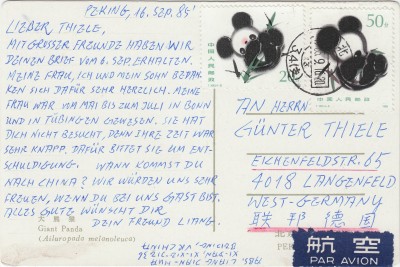 PEKING, 16. SEP. 85
LIEBER THIELE,
MIT GROSSER FREUNDE HABEN WIR
DEINEN BRIEF VOM 6. SEP. ERHALTEN.
MEINE FRAU, ICH UND MEIN SOHN BEDAN-
KEN SICH DAFÜR SEHR HERZLICH. MEINE
FRAU WAR VOM MAI BIS ZUM JULI IN BONN
UND IN TÜBINGEN GEWESEN. SIE HAT
DICH NICHT BESUCHT, DENN IHRE ZEIT WAR
SEHR KNAPP. DAFÜR BITTET SIE UM ENT-
SCHULDIGUNG. WANN KOMMST DU
NACH CHINA? WIR WÜRDEN UNS SEHR
FREUEN, WENN DU BEI UNS GAST BIST.
ALLES GUTE WÜNSCHT DIR
DEIN FREUND LIANG
大熊猫
Giant Panda
(Ailuropoda melanoleuca)
中国人民邮政
20分
中国人民邮政
50分
AN HERRN
GÜNTER THIELE
EICHENFELDSTR. 65
4018 LANGENFELD
WEST-GERMANY
联邦德国
航空
PAR AVION